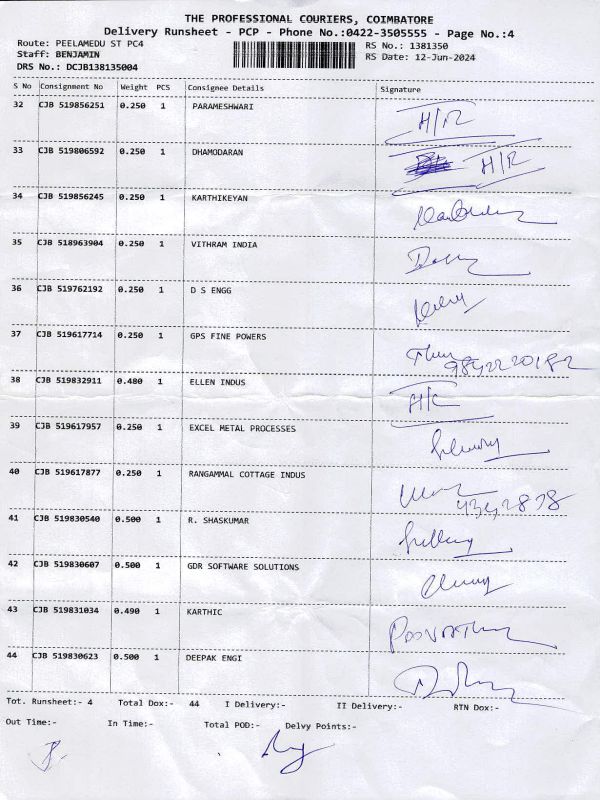 THE PROFESSIONAL COURIERS, COIMBATORE
Delivery Runsheet - PCP - Phone No.:0422-3505555 - Page No.:4
Route: PEELAMEDU ST PC4 RS No.: 1381350
Staff: BENJAMIN RS Date: 12-Jun-2024
DRS No.: DCJB138135004
S No Consignment No Weight PCS Consignee Details Signature
32 CJB 519856251 0.250 1 PARAMESHWARI H/R
33 CJB 519806592 0.250 1 DHAMODARAN H/R
34 CJB 519856245 0.250 1 KARTHIKEYAN
35 CJB 518963904 0.250 1 VITHRAM INDIA
36 CJB 519762192 0.250 1 D S ENGG
37 CJB 519617714 0.250 1 GPS FINE POWERS 9842220182
38 CJB 519832911 0.480 1 ELLEN INDUS
39 CJB 519617957 0.250 1 EXCEL METAL PROCESSES
40 CJB 519617877 0.250 1 RANGAMMAL COTTAGE INDUS
41 CJB 519830540 0.500 1 R. SHASKUMAR
42 CJB 519830607 0.500 1 GDR SOFTWARE SOLUTIONS
43 CJB 519831034 0.490 1 KARTHIC
44 CJB 519830623 0.500 1 DEEPAK ENGI
Tot. Runsheet:- 4 Total Dox:- 44 I Delivery:- II Delivery:- RTN Dox:-
Out Time:- In Time:- Total POD:- Delvy Points:-